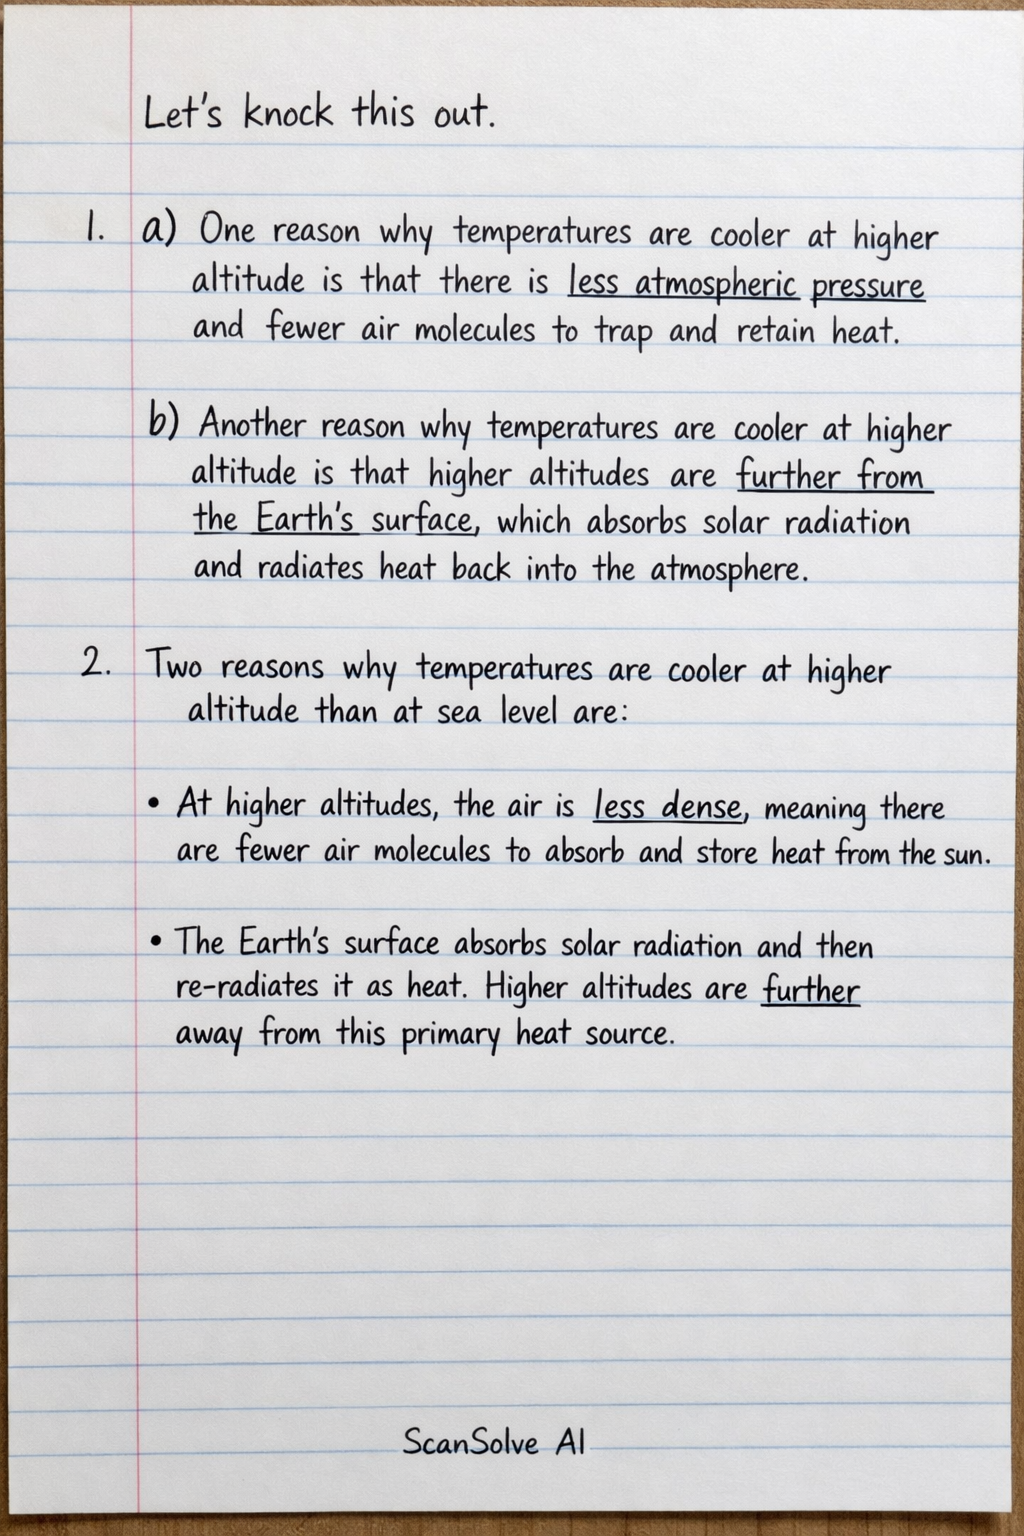 Let's knock this out.
1. a) One reason why temperatures are cooler at higher
altitude is that there is less atmospheric pressure
and fewer air molecules to trap and retain heat.
b) Another reason why temperatures are cooler at higher
altitude is that higher altitudes are further from
the Earth's surface, which absorbs solar radiation
and radiates heat back into the atmosphere.
2. Two reasons why temperatures are cooler at higher
altitude than at sea level are:
• At higher altitudes, the air is less dense, meaning there
are fewer air molecules to absorb and store heat from the sun.
• The Earth's surface absorbs solar radiation and then
re-radiates it as heat. Higher altitudes are further
away from this primary heat source.
ScanSolve AI